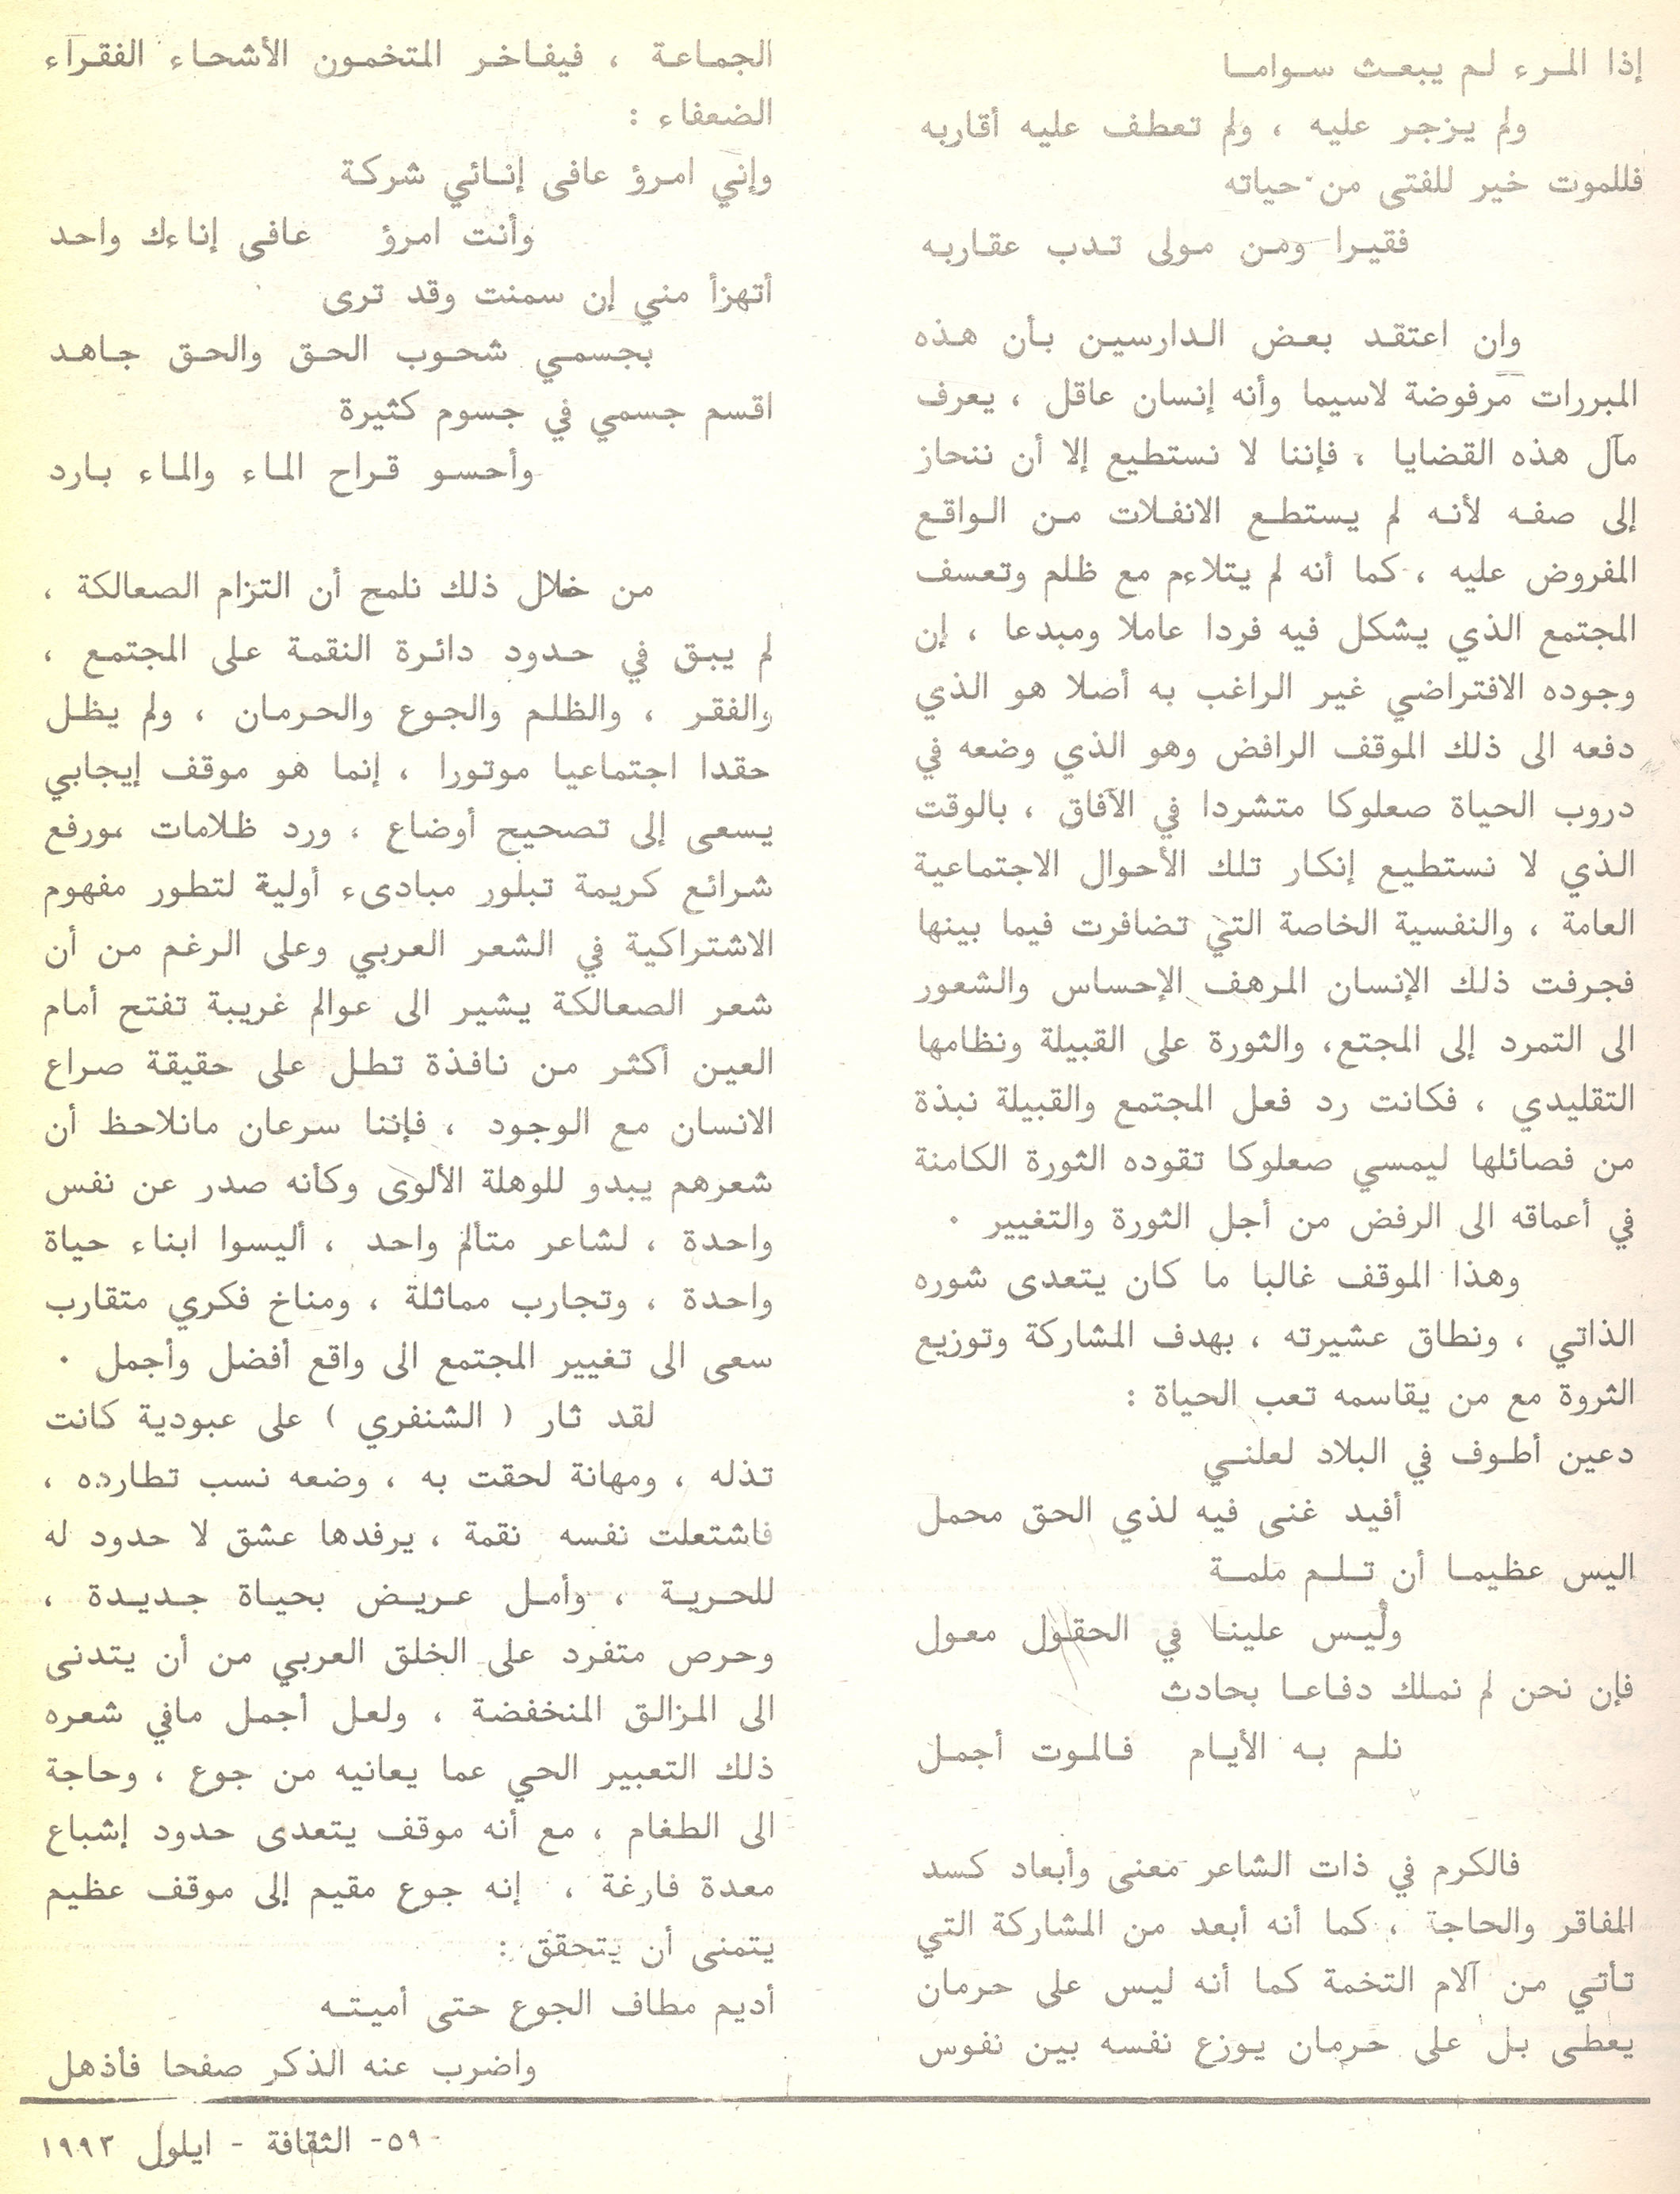 إذا المرء لم يبعث سواما
ولم يزجر عليه ، ولم تعطف عليه أقاربه
فللموت خير للفتى من حياته
فقيرا ومن مولى تدب عقاربه
وان اعتقد بعض الدارسين بأن هذه
المبررات مرفوضة لاسيما وأنه إنسان عاقل ، يعرف
مآل هذه القضايا ، فإننا لا نستطيع إلا أن ننحاز
إلى صفه لأنه لم يستطع الانفلات من الواقع
المفروض عليه ، كما أنه لم يتلاءم مع ظلم وتعسف
المجتمع الذي يشكل فيه فردا عاملا ومبدعا ، إن
وجوده الافتراضي غير الراغب به أصلا هو الذي
دفعه الى ذلك الموقف الرافض وهو الذي وضعه في
دروب الحياة صعلوكا متشردا في الآفاق ، بالوقت
الذي لا نستطيع إنكار تلك الأحوال الاجتماعية
العامة ، والنفسية الخاصة التي تضافرت فيما بينها
فجرفت ذلك الإنسان المرهف الإحساس والشعور
الى التمرد إلى المجتع، والثورة على القبيلة ونظامها
التقليدي ، فكانت رد فعل المجتمع والقبيلة نبذة
من فصائلها ليمسي صعلوكا تقوده الثورة الكامنة
في أعماقه الى الرفض من أجل الثورة والتغيير ٠
وهذا الموقف غالبا ما كان يتعدى شوره
الذاتي ، ونطاق عشيرته ، بهدف المشاركة وتوزيع
الثروة مع من يقاسمه تعب الحياة :
دعين أطوف في البلاد لعلني
أفيد غنى فيه لذي الحق محمل
اليس عظيما أن تلم ملمة
وليس علينا في الحقول معول
فإن نحن لم نملك دفاعا بحادث
نلم به الأيام فالموت أجمل
فالكرم في ذات الشاعر معنى وأبعاد كسد
المفاقر والحاجة ، كما أنه أبعد من المشاركة التي
تأتي من آلام التخمة كما أنه ليس على حرمان
يعطى بل على حرمان يوزع نفسه بين نفوس
الجماعة ، فيفاخر المتخمون الأشحاء الفقراء
الضعفاء :
وإني امرؤ عافى إنائي شركة
وأنت امرؤ عافى إناءك واحد
أتهزأ مني إن سمنت وقد ترى
بجسمي شحوب الحق والحق جاهد
اقسم جسمي في جسوم كثيرة
وأحسو قراح الماء والماء بارد
من خلال ذلك نلمح أن التزام الصعالكة ،
لم يبق في حدود دائرة النقمة على المجتمع ،
والفقر ، والظلم والجوع والحرمان ، ولم يظل
حقدا اجتماعيا موتورا ، إنما هو موقف إيجابي
يسعى إلى تصحيح أوضاع ، ورد ظلامات ،ورفع
شرائع كريمة تبلور مبادىء أولية لتطور مفهوم
الاشتراكية في الشعر العربي وعلى الرغم من أن
شعر الصعالكة يشير الى عوالم غريبة تفتح أمام
العين أكثر من نافذة تطل على حقيقة صراع
الانسان مع الوجود ، فإننا سرعان مانلاحظ أن
شعرهم يبدو للوهلة الألوى وكأنه صدر عن نفس
واحدة ، لشاعر متألم واحد ، أليسوا ابناء حياة
واحدة ، وتجارب مماثلة ، ومناخ فكري متقارب
سعى الى تغيير المجتمع الى واقع أفضل وأجمل ٠
لقد ثار ( الشنفري ) على عبودية كانت
تذله ، ومهانة لحقت به ، وضعه نسب تطارده ،
فاشتعلت نفسه نقمة ، يرفدها عشق لا حدود له
للحرية ، وأمل عريض بحياة جديدة ،
وحرص متفرد على الخلق العربي من أن يتدنى
الى المزالق المنخفضة ، ولعل أجمل مافي شعره
ذلك التعبير الحي عما يعانيه من جوع ، وحاجة
الى الطغام ، مع أنه موقف يتعدى حدود إشباع
معدة فارغة ، إنه جوع مقيم إلى موقف عظيم
يتمنى أن يتحقق :
أديم مطاف الجوع حتى أميته
واضرب عنه الذكر صفحا فأذهل
-٥٩- الثقافة - ايلول ١٩٩٣